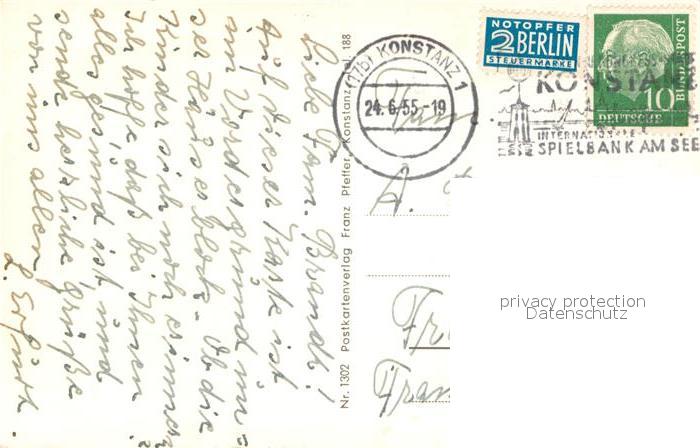 Liebe Fam. Brandt!
Auf dieser Karte ist
im Vordergrund un-
ser Häuserblock. Ob die
Kinder sich noch erinnern?
Ich hoffe daß bei Ihnen
alles gesund ist und
sende herzliche Grüße
von uns allen
L. Erfurt.
Nr. 1302 Postkartenverlag Franz Pfeffer, Konstanz, Tel. 188
(17b) KONSTANZ 1
24.6.55.-19
NOTOPFER
2 BERLIN
STEUERMARKE
10
DEUTSCHE
BUNDESPOST
KONSTANZ
INTERNATIONALE
SPIELBANK AM SEE
A.
privacy protection
Datenschutz